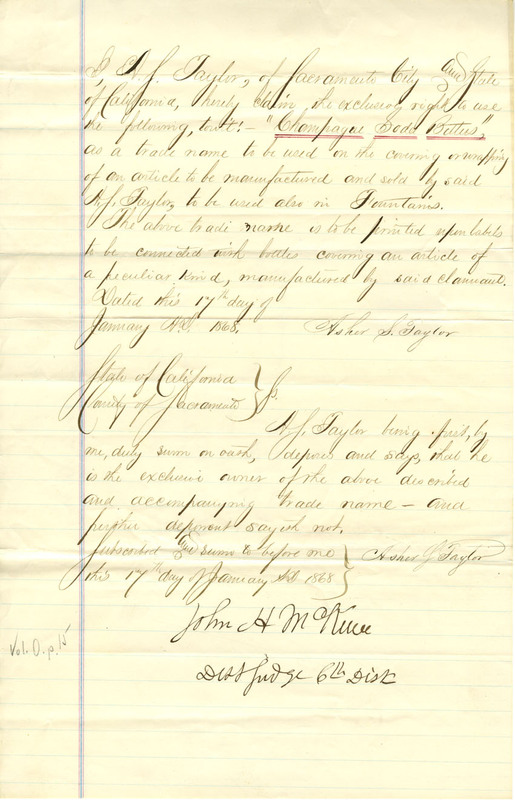 I, A. S. Taylor, of Sacramento City and State
of California, hereby claim the exclusive right to use
the following, to wit:- "Champagne Soda Bitters,"
as a trade name to be used on the covering or wrapping
of an article to be manufactured and sold by said
A. S. Taylor, to be used also in Fountains.
The above trade name is to be printed upon labels
to be connected with bottles covering an article of
a peculiar kind, manufactured by said claimant.
Dated this 17th day of
January A.D. 1868. Asher S. Taylor
State of California
County of Sacramento } ss.
A. S. Taylor being first, by
me, duly sworn on oath, deposes and says, that he
is the exclusive owner of the above described
and accompanying trade name - and
further deponent sayeth not.
Subscribed and sworn to before me
this 17th day of January AD 1868 } Asher S. Taylor
John H McKune
Dist Judge 6th Dist
Vol. 0. p. 15